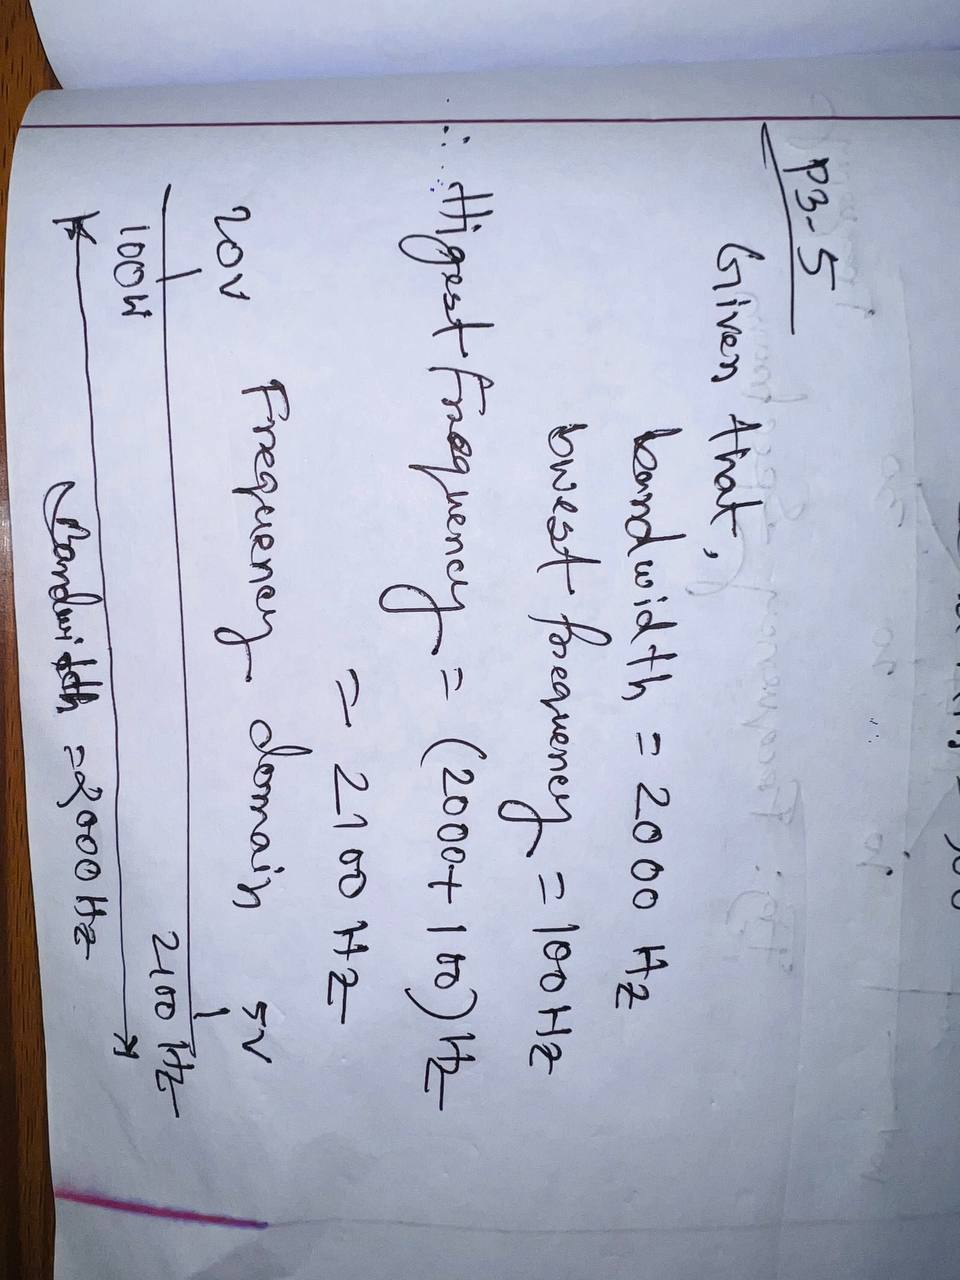 P3-5
Given that,
bandwidth = 2000 Hz
lowest frequency = 100 Hz
∴ Higest frequency = (2000+100) Hz
= 2100 Hz
Frequency domain
20V 5V
100H 2100 Hz
Bandwidth = 2000 Hz